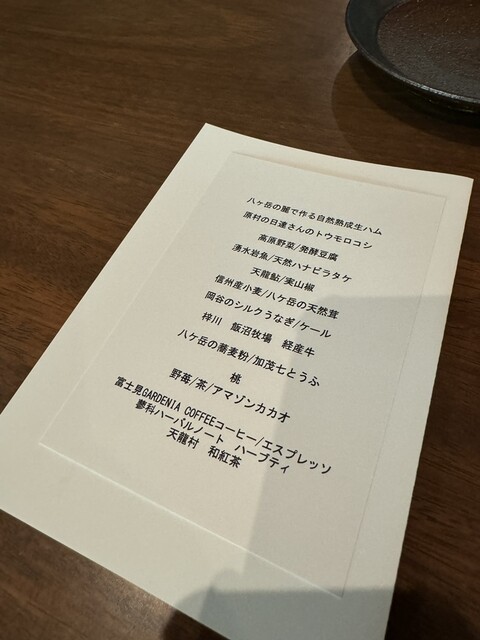 八ヶ岳の麓で作る自然熟成生ハム
原村の日達さんのトウモロコシ
高原野菜/発酵豆腐
湧水岩魚/天然ハナビラタケ
天龍鮎/実山椒
信州産小麦/八ケ岳の天然茸
岡谷のシルクうなぎ/ケール
梓川　飯沼牧場　経産牛
八ケ岳の蕎麦粉/加茂七とうふ
桃
野苺/茶/アマゾンカカオ
富士見GARDENIA COFFEEコーヒー/エスプレッソ
蓼科ハーバルノート　ハーブティ
天龍村　和紅茶